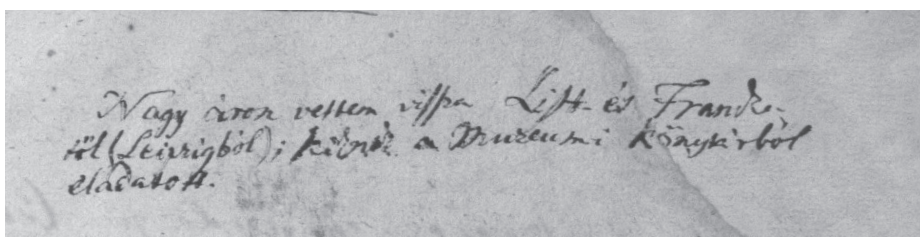 Nagy áron vettem vissza List- és Francke-
től (Leipzigból); a Muzeumi könytárból
eladatott.